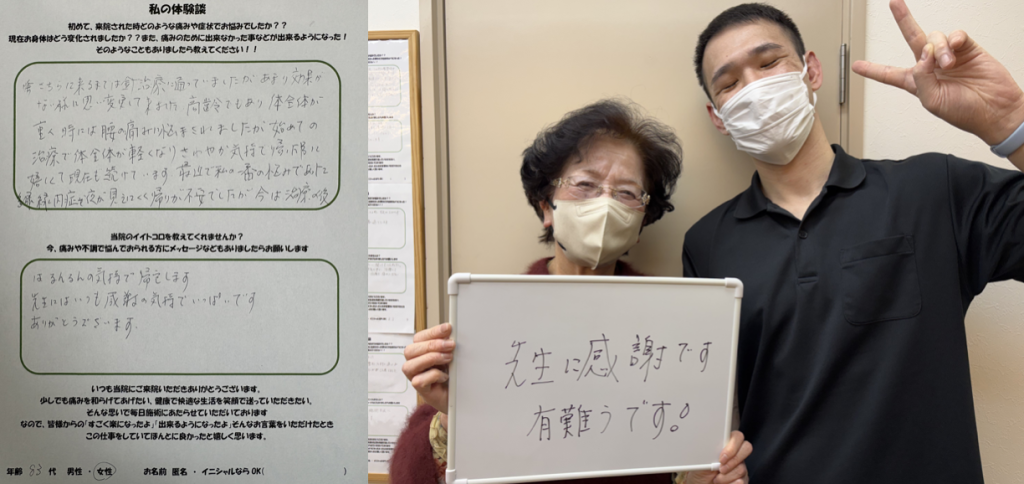 私の体験談
初めて、来院された時どのような痛みや症状でお悩みでしたか？？
現在お身体はどう変化されましたか？？また、痛みのために出来なかった事などが出来るようになった！
そのようなこともありましたら教えてください！！
こちらに来るまでは針治療に通っていましたがあまり効果が
ない様に思い変更しました 高齢でもあり体全体が
重く時には腰の痛みに悩まされましたが始めての
治療で体全体が軽くなりさわやか気持で帰り
嬉しくて現在も続けています 最近で私の一番の悩みであった
緑内症で夜が見えにくく帰りが不安でしたが今は治療の後
当院のイイトコロを教えてくれませんか？
今、痛みや不調で悩んでおられる方にメッセージなどもありましたらお願いします
はるんるんの気持で帰宅します
先生にはいつも感謝の気持でいっぱいです
ありがとうございます.
いつも当院にご来院いただきありがとうございます。
少しでも痛みを和らげてあげたい、健康で快適な生活を笑顔で送っていただきたい、
そんな思いで毎日施術にあたらせていただいております
なので、皆様からの「すごく楽になったよ」「出来るようになったよ」そんなお言葉をいただけたとき
この仕事をしていてほんとに良かったと嬉しく思います。
年齢 83 代 男性 ・ 女性 お名前 匿名 ・ イニシャルなら OK( )
先生に感謝です
有難うです。